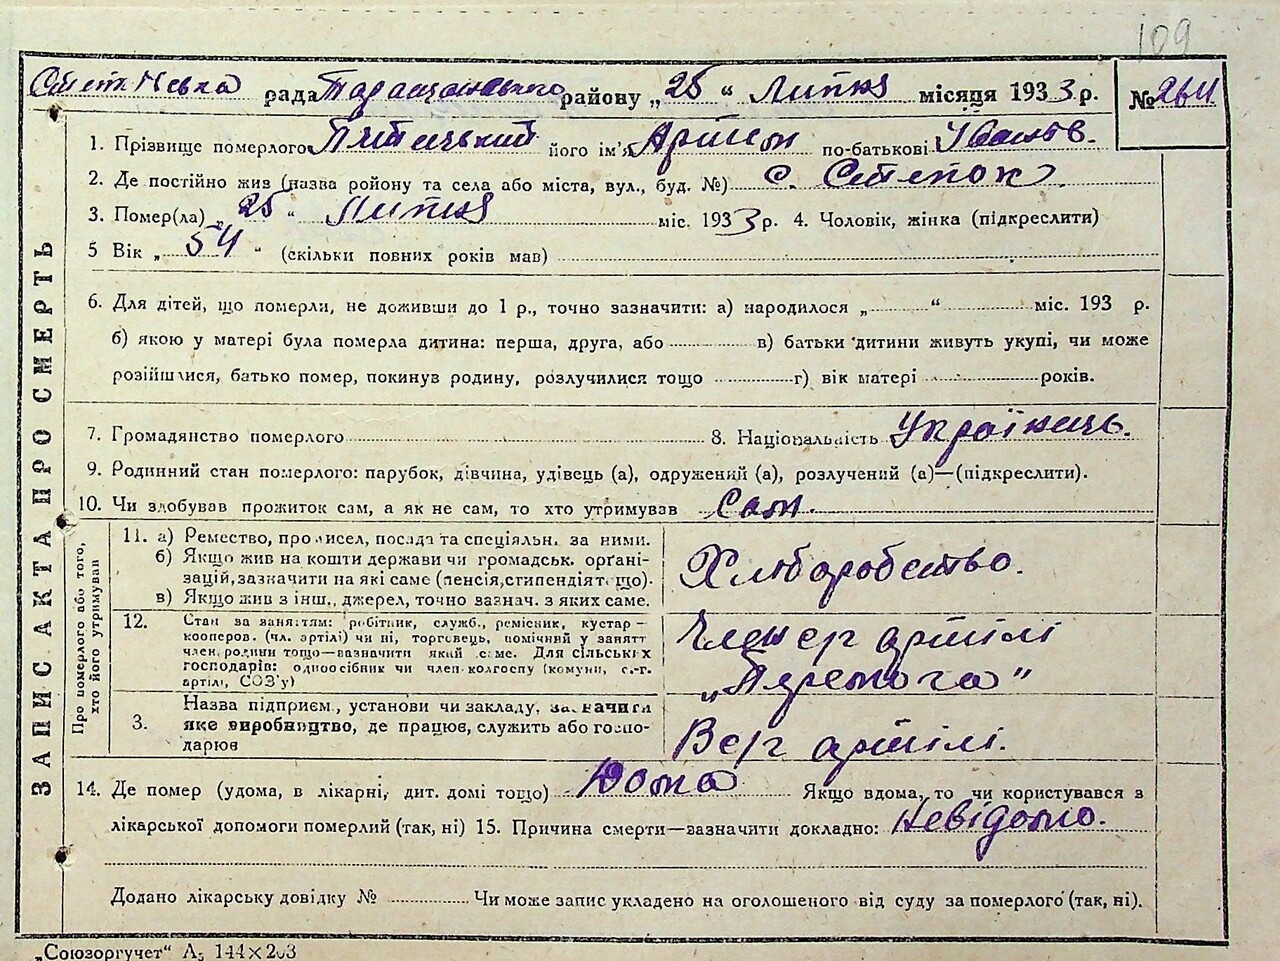 109
рада Таращанського району „25“ Липня місяця 1933 р. №264
1. Прізвище померлого його ім'я Артем по-батькові Іванов.
2. Де постійно жив (назва району та села або міста, вул., буд. №) с. Степок
3. Помер(ла) „25“ Липня міс. 1933 р. 4. Чоловік, жінка (підкреслити)
5 Вік „54“ (скільки повних років мав)
6. Для дітей, що померли, не доживши до 1 р., точно зазначити: а) народилося „ “ міс. 193 р.
б) якою у матері була померла дитина: перша, друга, або в) батьки дитини живуть укупі, чи може
розійшлися, батько помер, покинув родину, розлучилися тощо г) вік матері років.
7. Громадянство померлого 8. Національність Українець.
9. Родинний стан померлого: парубок, дівчина, удівець (а), одружений (а), розлучений (а)—(підкреслити).
10. Чи здобував прожиток сам, а як не сам, то хто утримував Сам.
ЗАПИС АКТА ПРО СМЕРТЬ
Про померлого або того, хто його утримував
11. а) Ремество, промисел, посада та спеціяльн. за ними.
б) Якщо жив на кошти держави чи громадськ. орґані-
зацій, зазначити на які саме (пенсія, стипендіят, що).
в) Якщо жив з інш., джерел, точно зазнач. з яких саме.
Хліборобство.
12. Стан за заняттям: робітник, служб., ремісник, кустар—
кооперов. (чл. артілі) чи ні, торговець, помічний у занятт
член родини тощо—зазначити який саме. Для сільських
господарів: одноосібник чи член колгоспу (комуни, с.-г.
артілі, СОЗ'у)
артілі
„Перемога“
3. Назва підприєм., установи чи закладу, зазначити
яке виробництво, де працює, служить або госпо-
дарює
В с/г артілі.
14. Де помер (удома, в лікарні, дит. домі тощо) Дома Якщо вдома, то чи користувався з
лікарської допомоги померлий (так, ні) 15. Причина смерти—зазначити докладно: Невідомо.
Додано лікарську довідку № Чи може запис укладено на оголошеного від суду за померлого (так, ні).
„Союзоргучет“ А5 144×203